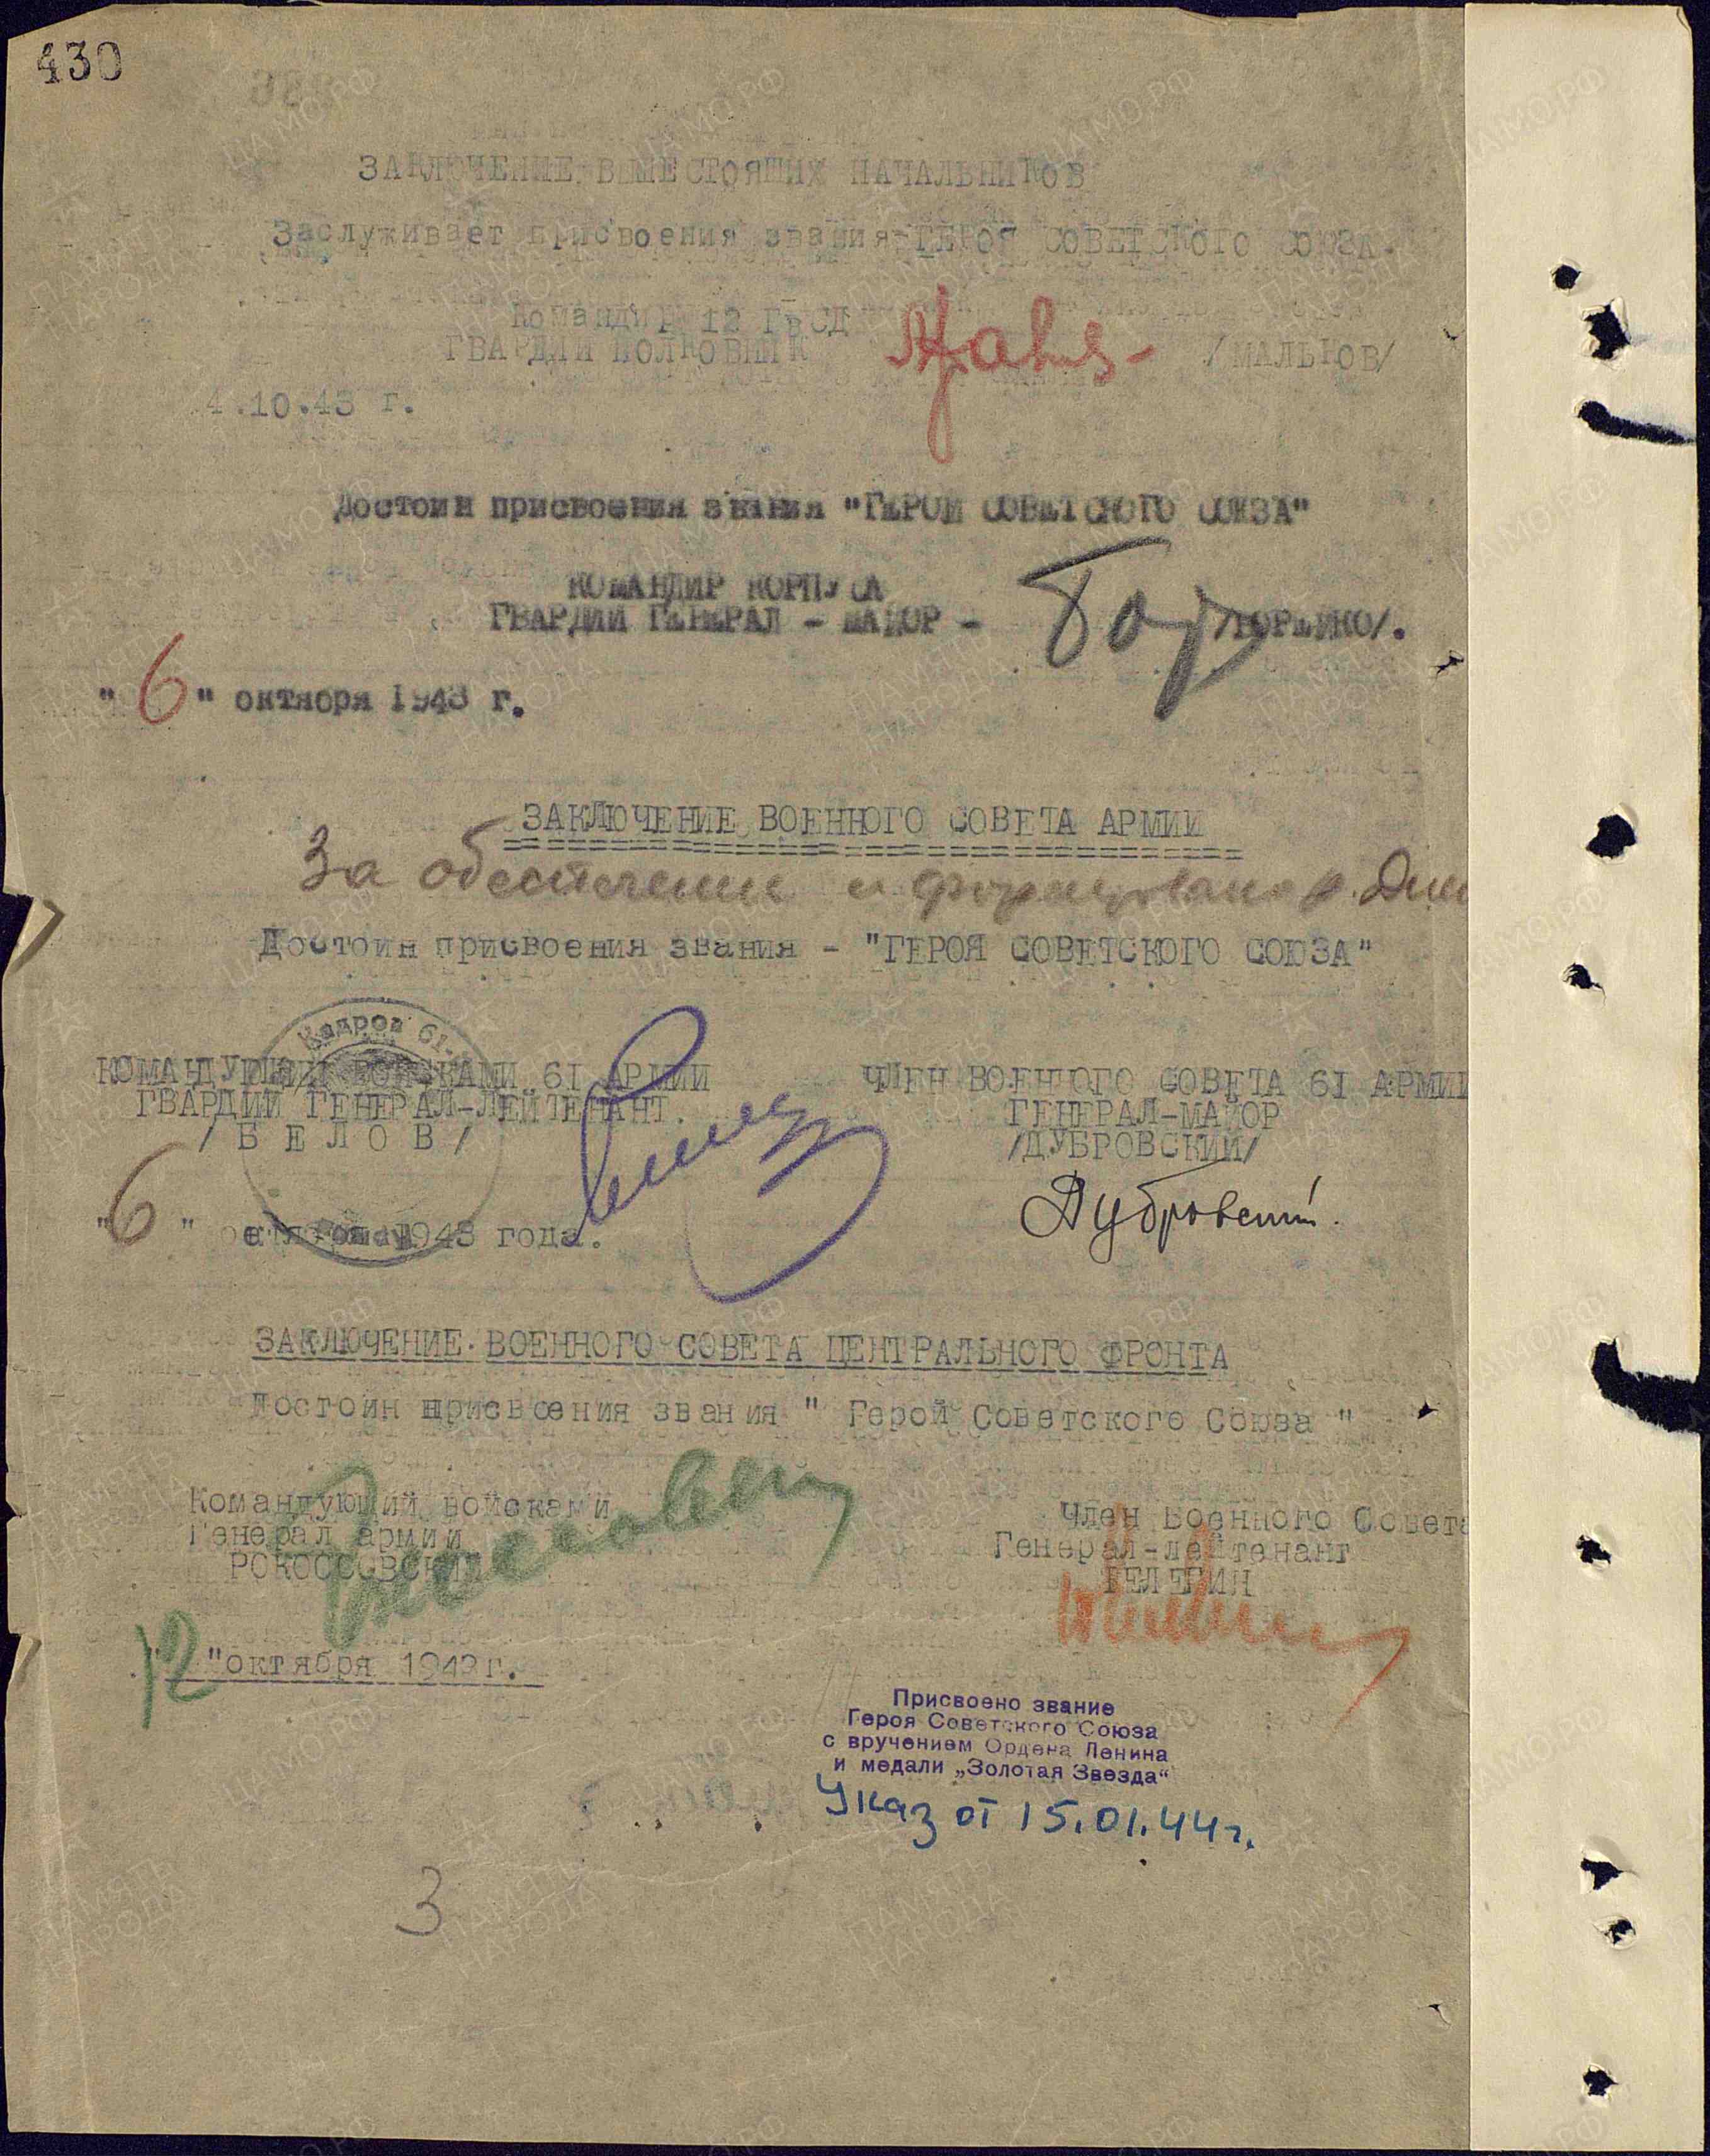 430
ЗАКЛЮЧЕНИЕ ВЫШЕСТОЯЩИХ НАЧАЛЬНИКОВ
Заслуживает присвоения звания ГЕРОЯ СОВЕТСКОГО СОЮЗА.
Командир 12 ГвСД
ГВАРДИИ ПОЛКОВНИК /МАЛЬКОВ/
4.10.43 г.
Достоин присвоения звания "ГЕРОЙ СОВЕТСКОГО СОЮЗА"
КОМАНДИР КОРПУСА
ГВАРДИИ ГЕНЕРАЛ - МАЙОР - /БОРЕЙКО/.
"6" октября 1943 г.
ЗАКЛЮЧЕНИЕ ВОЕННОГО СОВЕТА АРМИИ
За обеспечение и форсирование р. Дне
Достоин присвоения звания - "ГЕРОЯ СОВЕТСКОГО СОЮЗА"
Кадров 61-
КОМАНДУЮЩИЙ ВОЙСКАМИ 61 АРМИИ
ГВАРДИИ ГЕНЕРАЛ-ЛЕЙТЕНАНТ.
/ Б Е Л О В /
ЧЛЕН ВОЕННОГО СОВЕТА 61 АРМИИ
ГЕНЕРАЛ-МАЙОР
/ДУБРОВСКИЙ/
Дубровский.
"6" октября 1943 года.
ЗАКЛЮЧЕНИЕ ВОЕННОГО СОВЕТА ЦЕНТРАЛЬНОГО ФРОНТА
Достоин присвоения звания " Герой Советского Союза "
Командующий войсками
Генерал армии
РОКОССОВСКИЙ
Член Военного Совета
Генерал-лейтенант
ТЕЛЕГИН
"12" октября 1943 г.
Присвоено звание
Героя Советского Союза
с вручением Ордена Ленина
и медали „Золотая Звезда“
Указ от 15.01.44г.
3
ПАМЯТЬ НАРОДА
ЦАМО.РФ